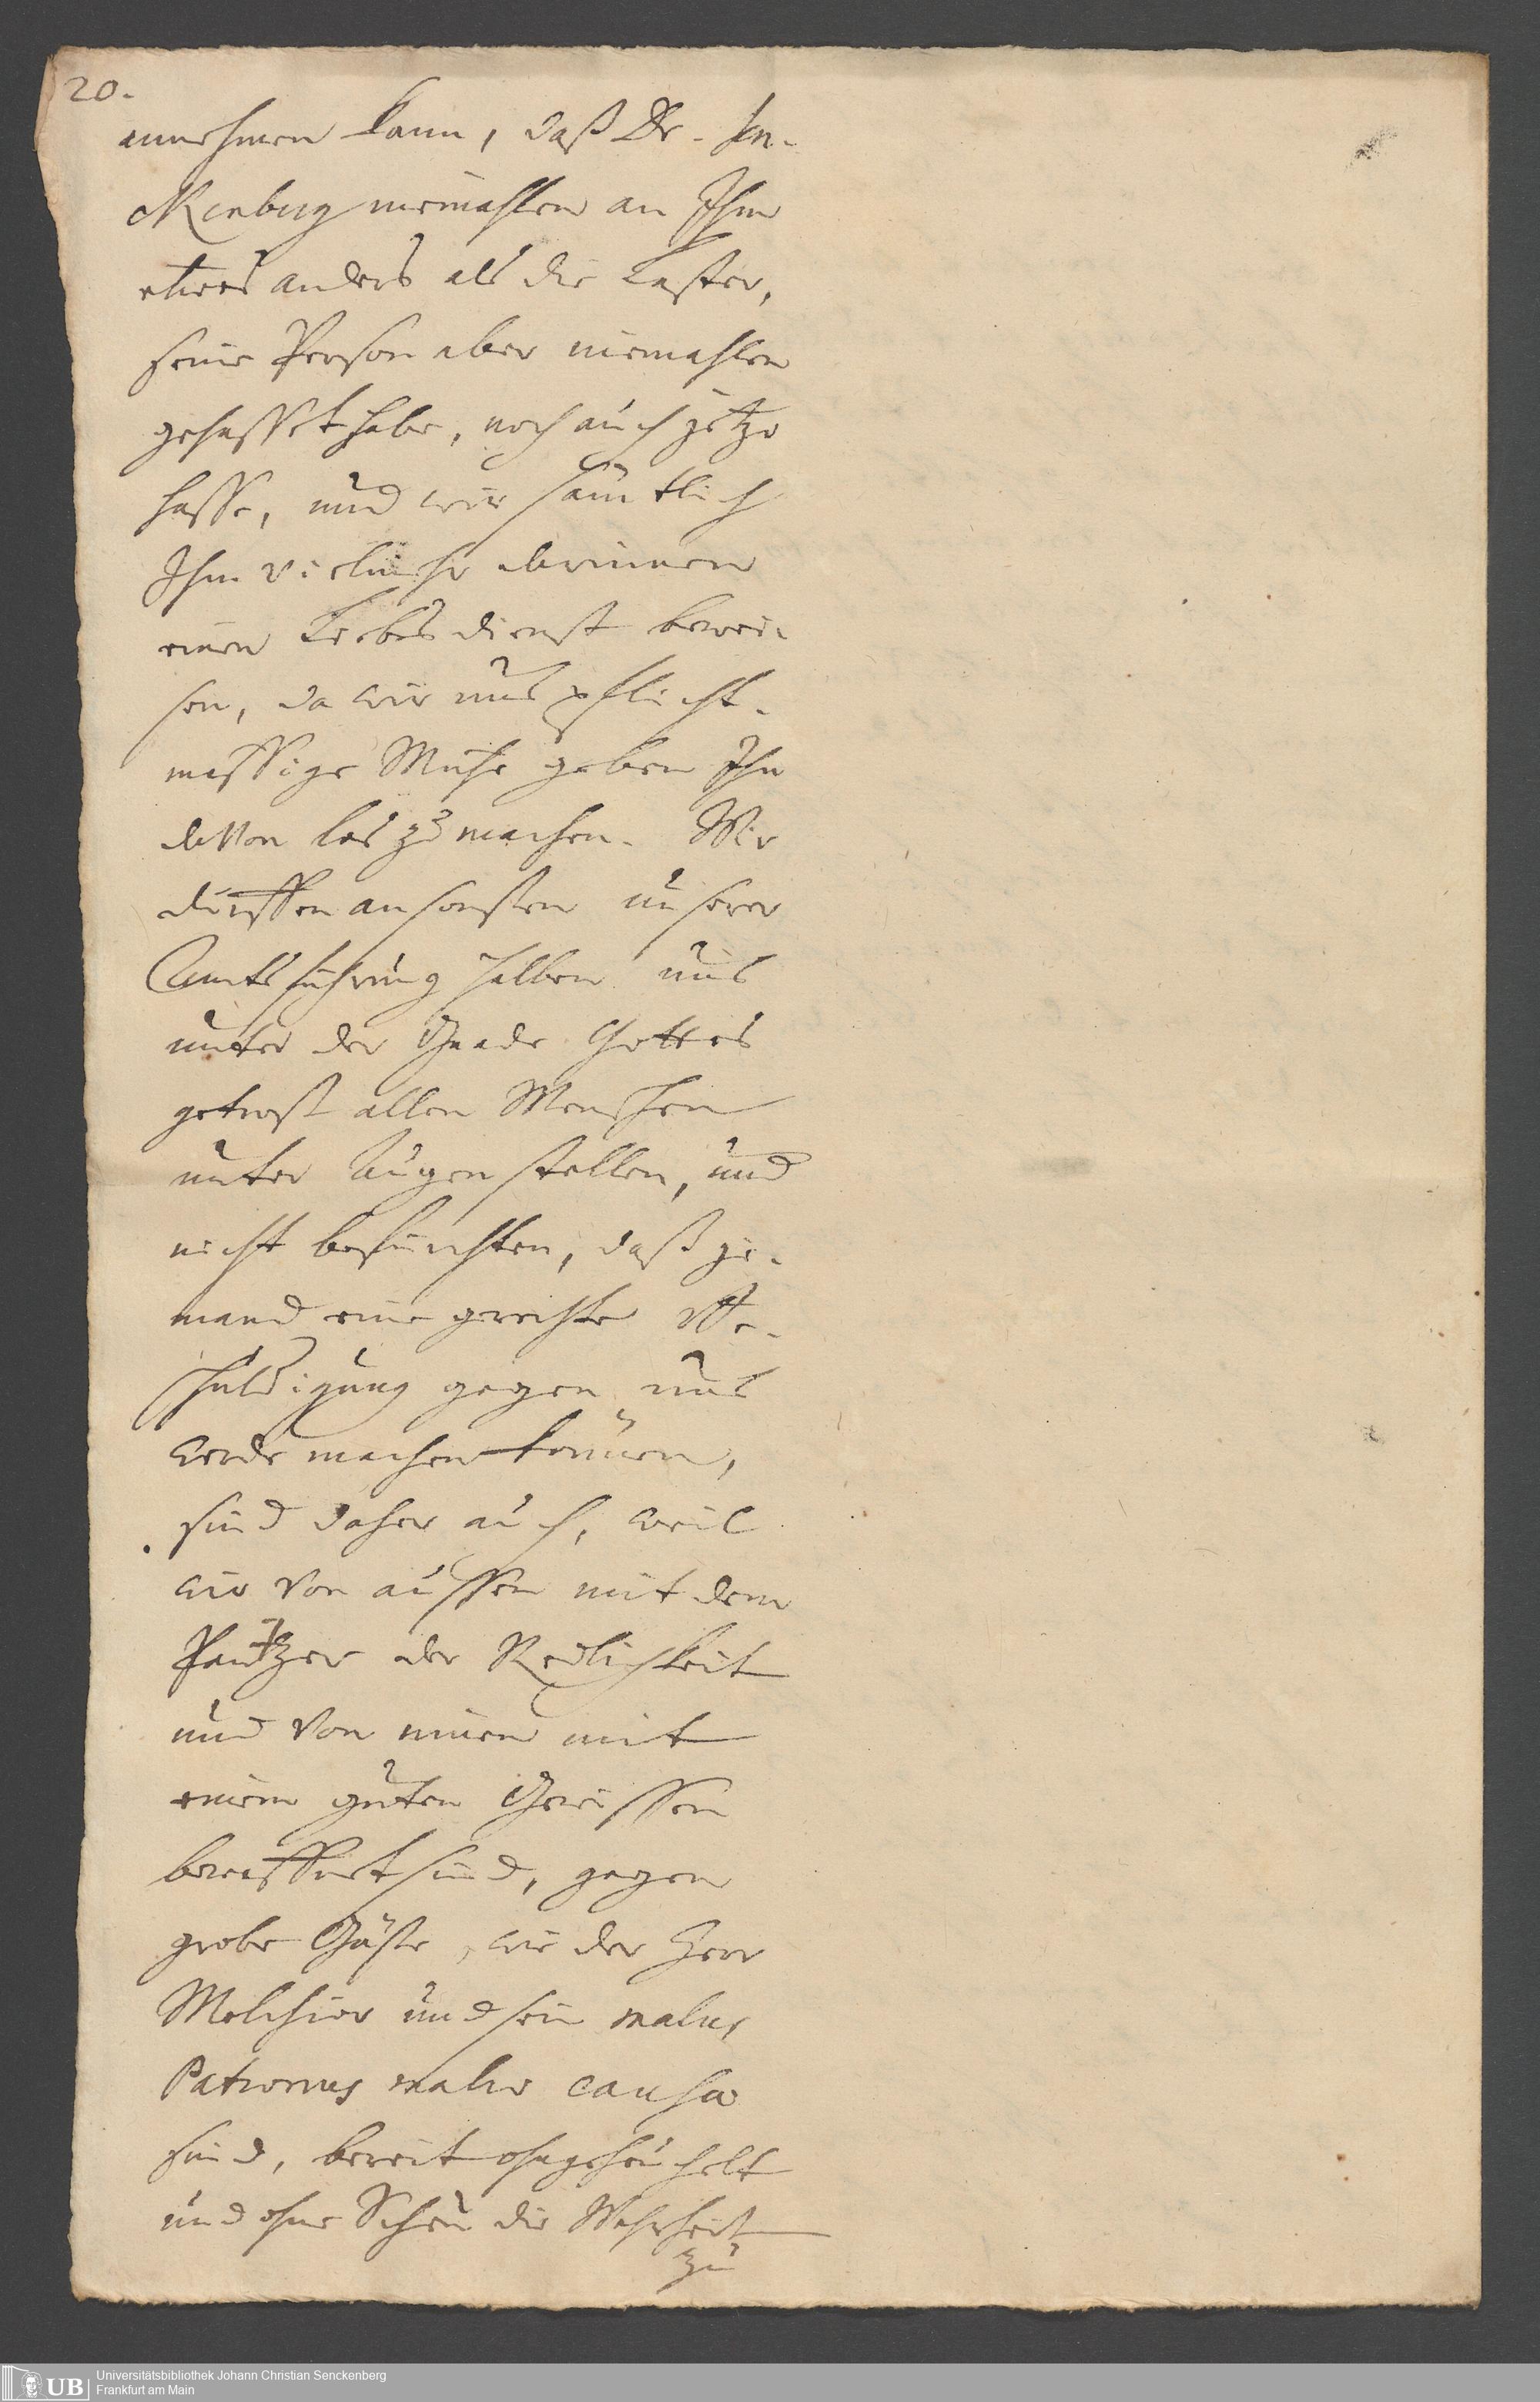 20.
annehmen kann, daß Dr. Sen-
ckenberg niemahlen an Ihm
etwas anders als die Laster,
seine Person aber niemahlen
gehasset habe, noch auch jetzo
hasse, und wir sämtlich
Ihm vielmehr darinnen
einen Liebesdienst bewei-
sen, da wir uns pflicht-
mässige Mühe geben Ihn
davon los zu machen. Wir
dürffen ansonsten unserer
Amtsführung halben uns
unter der Gnade Gottes
getrost allen Menschen
unter Augen stellen, und
nicht befürchten, daß je-
mand eine gerechte Be-
schuldigung gegen uns
werde machen können,
sind daher auch, weil
wir von aussen mit dem
Pantzer der Redlichkeit
und von innen mit
einem guten Gewissen
bewaffnet sind, gegen
grobe Gäste, wie der Herr
Melchior und sein malus
Patronus malae causae
sind, bereit ohngeheuchelt
und ohne Scheu die Wahrheit
zu
UB
Universitätsbibliothek Johann Christian Senckenberg
Frankfurt am Main